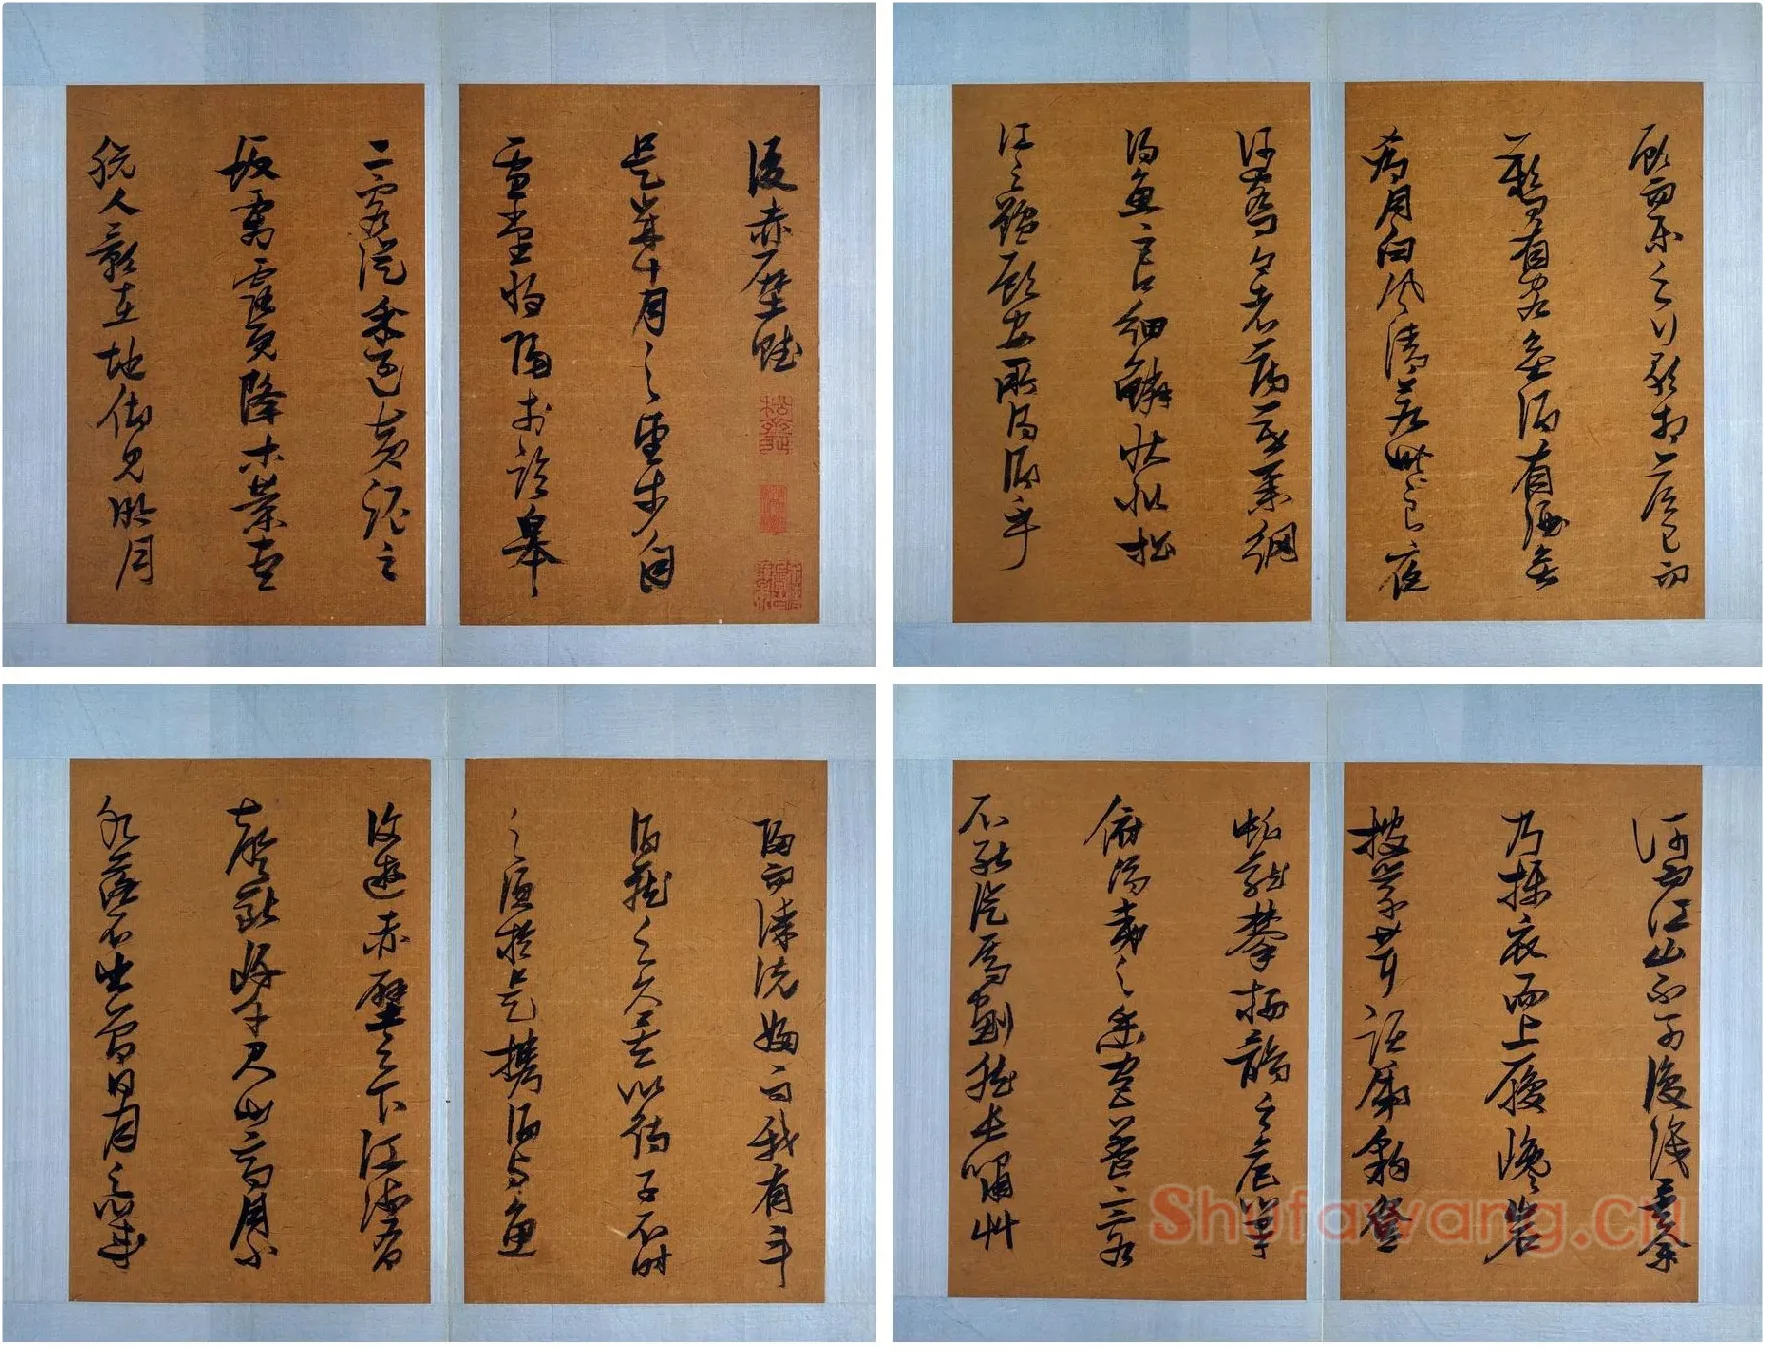 後赤壁賦
是歲十月之望步自
雪堂將歸于臨皋
二客從余過黃泥之
坂霜露既降木葉盡
脫人影在地仰見明月
顧而樂之行歌相答已而
歎曰有客無酒有酒無
肴月白風清若此良夜
何客曰今者薄暮舉網
得魚巨口細鱗狀似松
江之鱸顧安所得酒乎
歸而謀諸婦婦曰我有斗
酒藏之久矣以待子不時
之須於是攜酒與魚
復遊赤壁之下江流有
聲斷岸千尺山高月小
水落石出曾日月之幾
何而江山不可復識矣余
乃攝衣而上履巉岩
披蒙茸踞虎豹登
虬龍攀栖鶻之危巢
俯馮夷之幽宮蓋二客
不能從焉劃然長嘯艸
Shufawang.cn